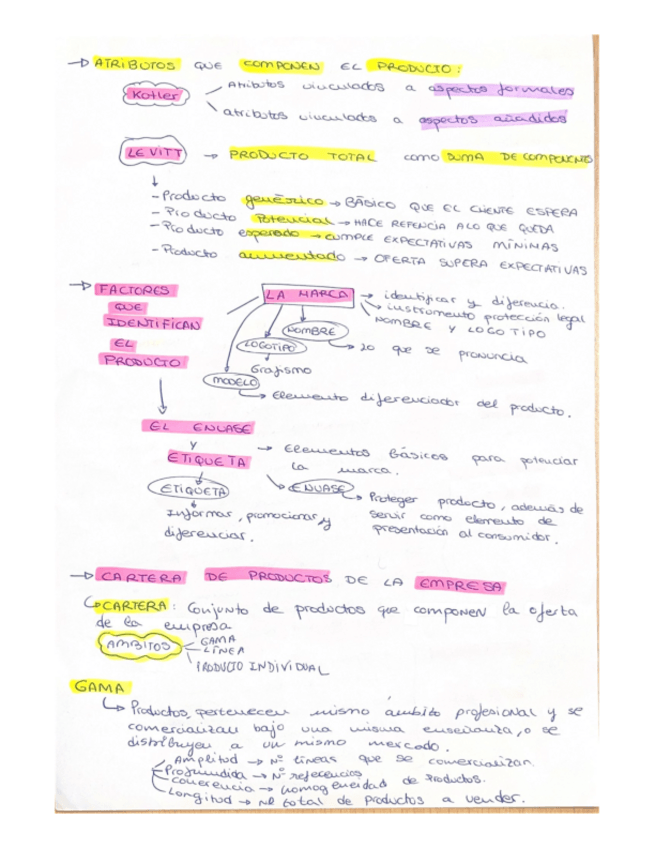 → ATRIBUTOS QUE COMPONEN EL PRODUCTO:
Kotler
Atributos vinculados a aspectos formales
atributos vinculados a aspectos añadidos
LEVITT → PRODUCTO TOTAL como SUMA DE COMPONENTES
- Producto genérico → BÁSICO QUE EL CLIENTE ESPERA
- Producto Potencial → HACE REFENCIA A LO QUE QUEDA
- Producto esperado → CUMPLE EXPECTATIVAS MÍNIMAS
- Producto aumentado → OFERTA SUPERA EXPECTATIVAS
→ FACTORES
QUE
IDENTIFICAN
EL
PRODUCTO
LA MARCA
→ identificar y diferencia.
→ instrumento protección legal
NOMBRE Y LOGOTIPO
NOMBRE
→ lo que se pronuncia
LOGOTIPO
Grafismo
MODELO
→ Elemento diferenciador del producto.
EL ENVASE
Y
ETIQUETA
→ Elementos básicos para potenciar
la marca.
ETIQUETA
Informar, promocionar y
diferenciar.
ENVASE
→ Proteger producto, además de
servir como elemento de
presentación al consumidor.
→ CARTERA DE PRODUCTOS DE LA EMPRESA
→ CARTERA: Conjunto de productos que componen la oferta
de la empresa
AMBITOS
GAMA
LÍNEA
PRODUCTO INDIVIDUAL
GAMA
→ Productos, pertenecen mismo ámbito profesional y se
comercializan bajo una misma enseñanza, o se
distribuyen a un mismo mercado.
Amplitud → Nº líneas que se comercializan.
Profundida → Nº referencias
Coherencia → homogeneidad de productos.
Longitud → NR total de Productos a vender.